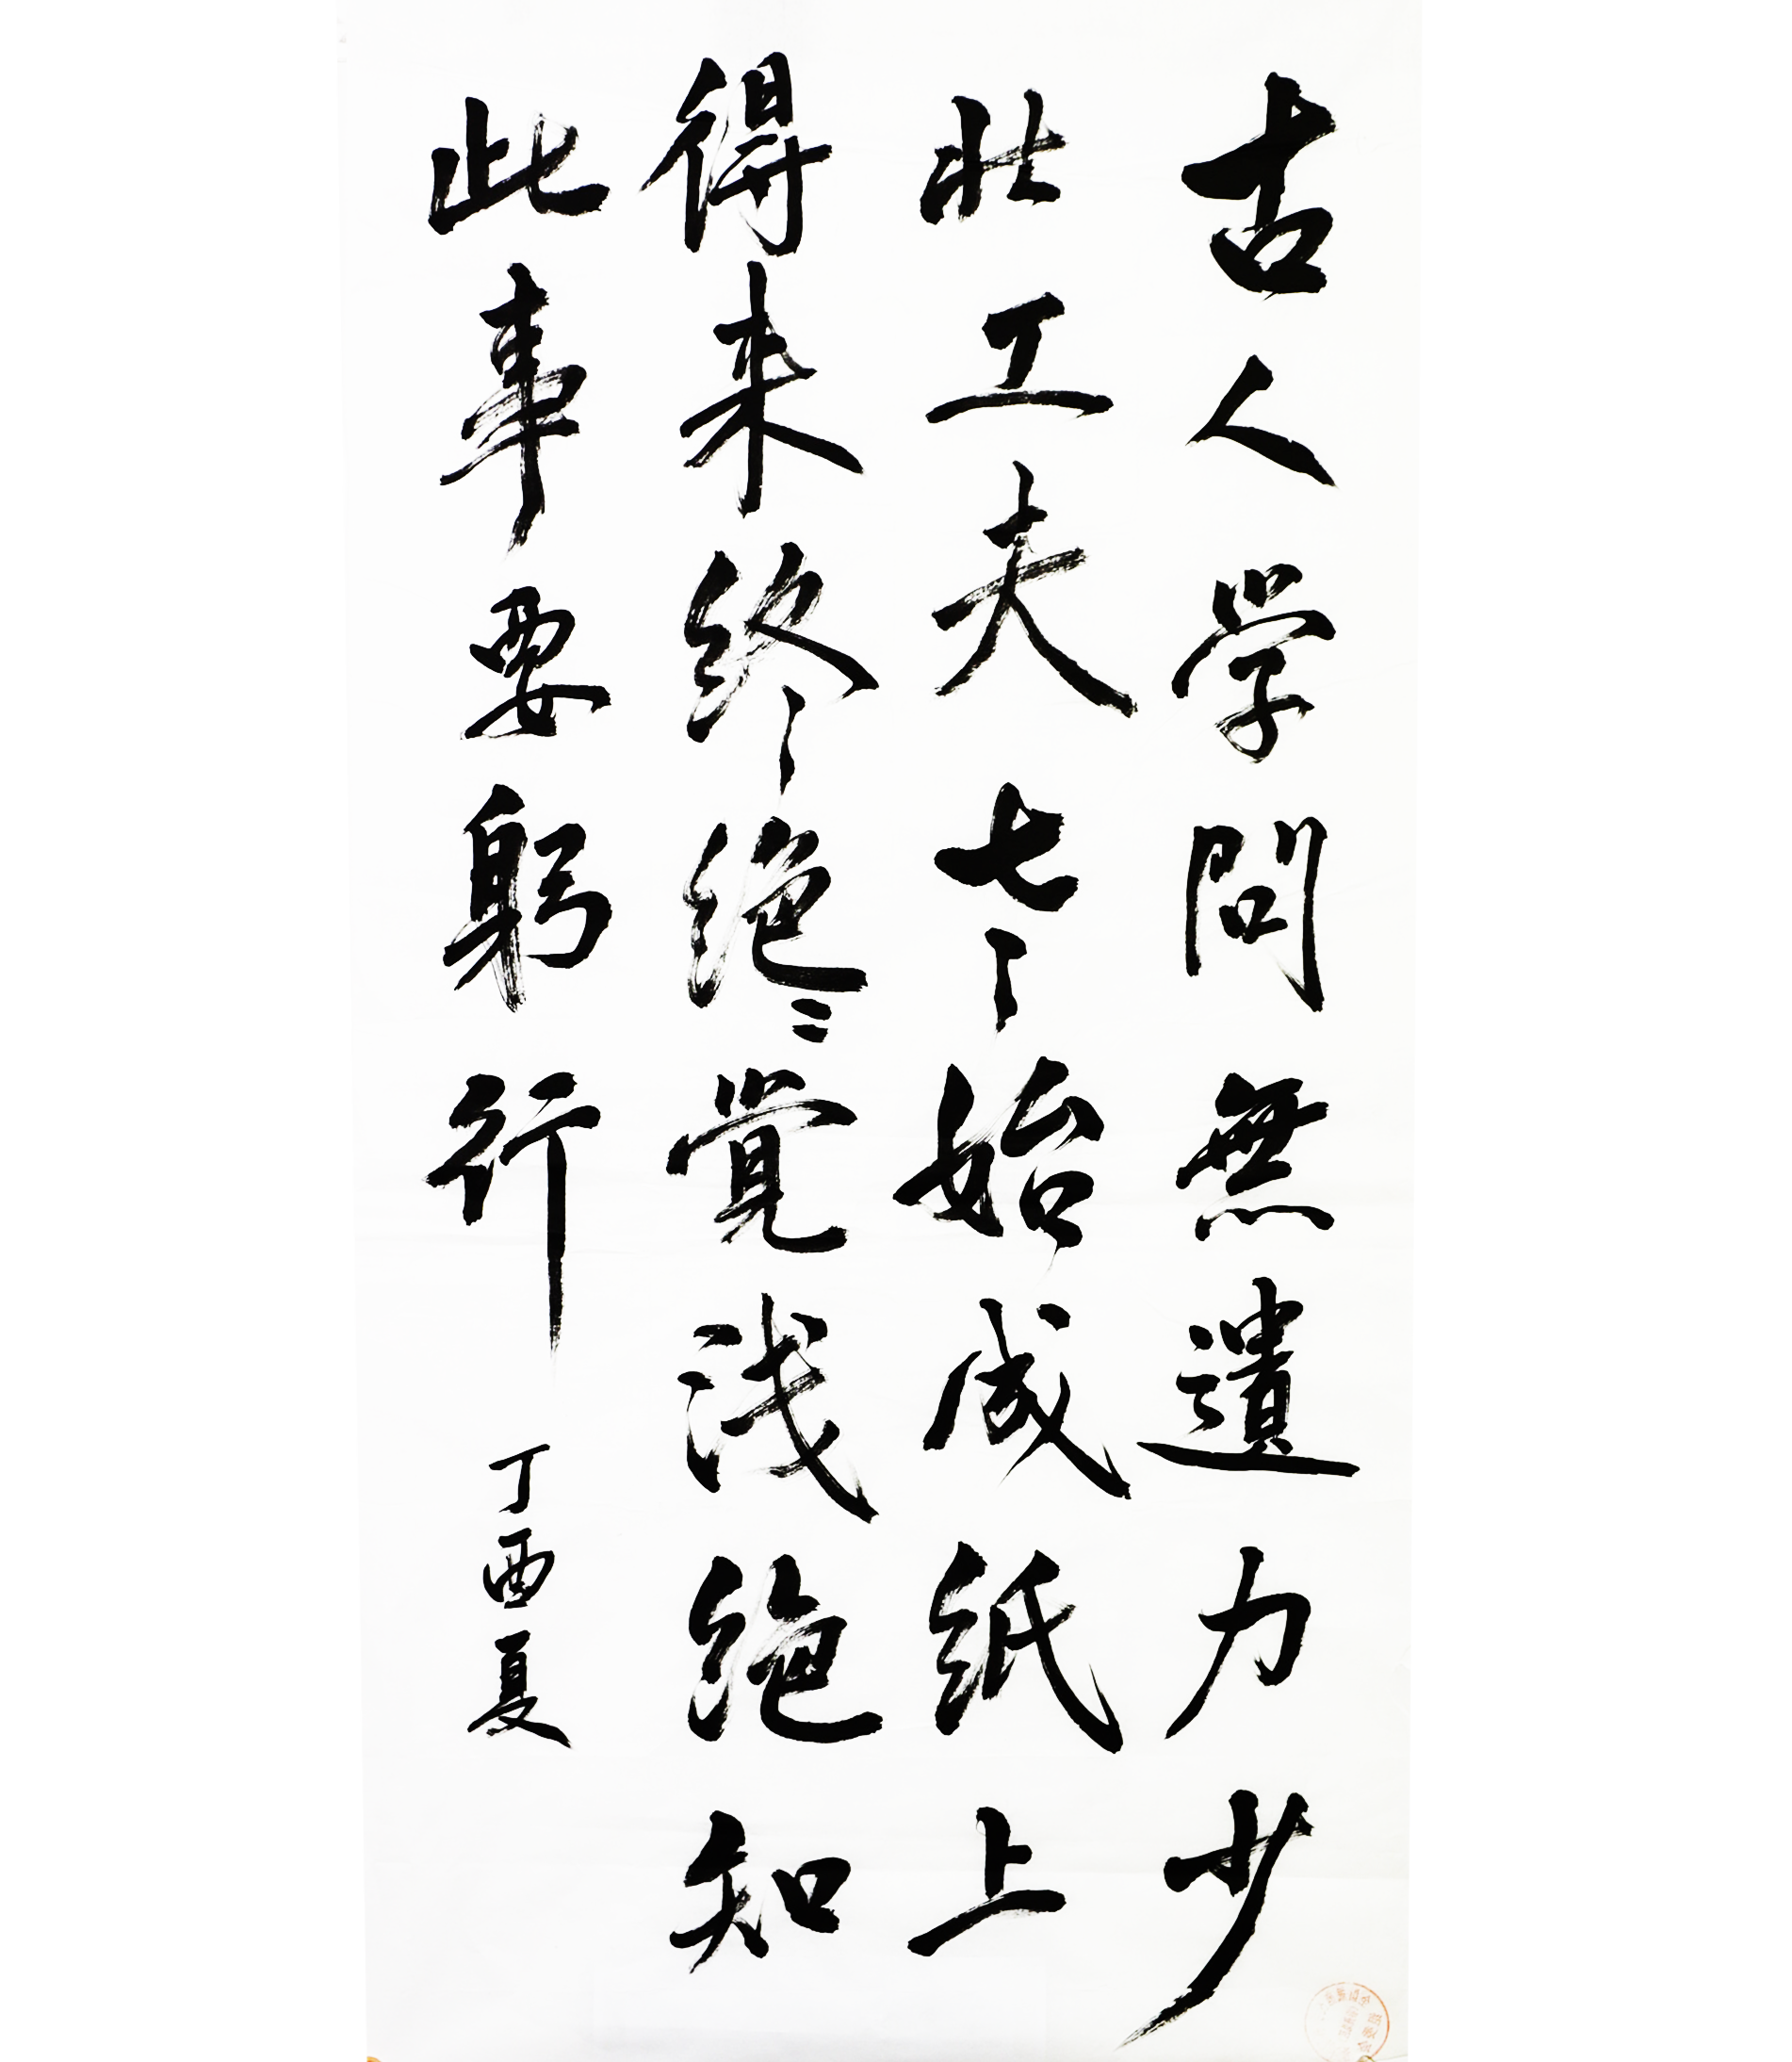 古人学問無遺力少
壮工夫老始成紙上
得来終絶覚浅絶知
此事要躬行
丁酉夏